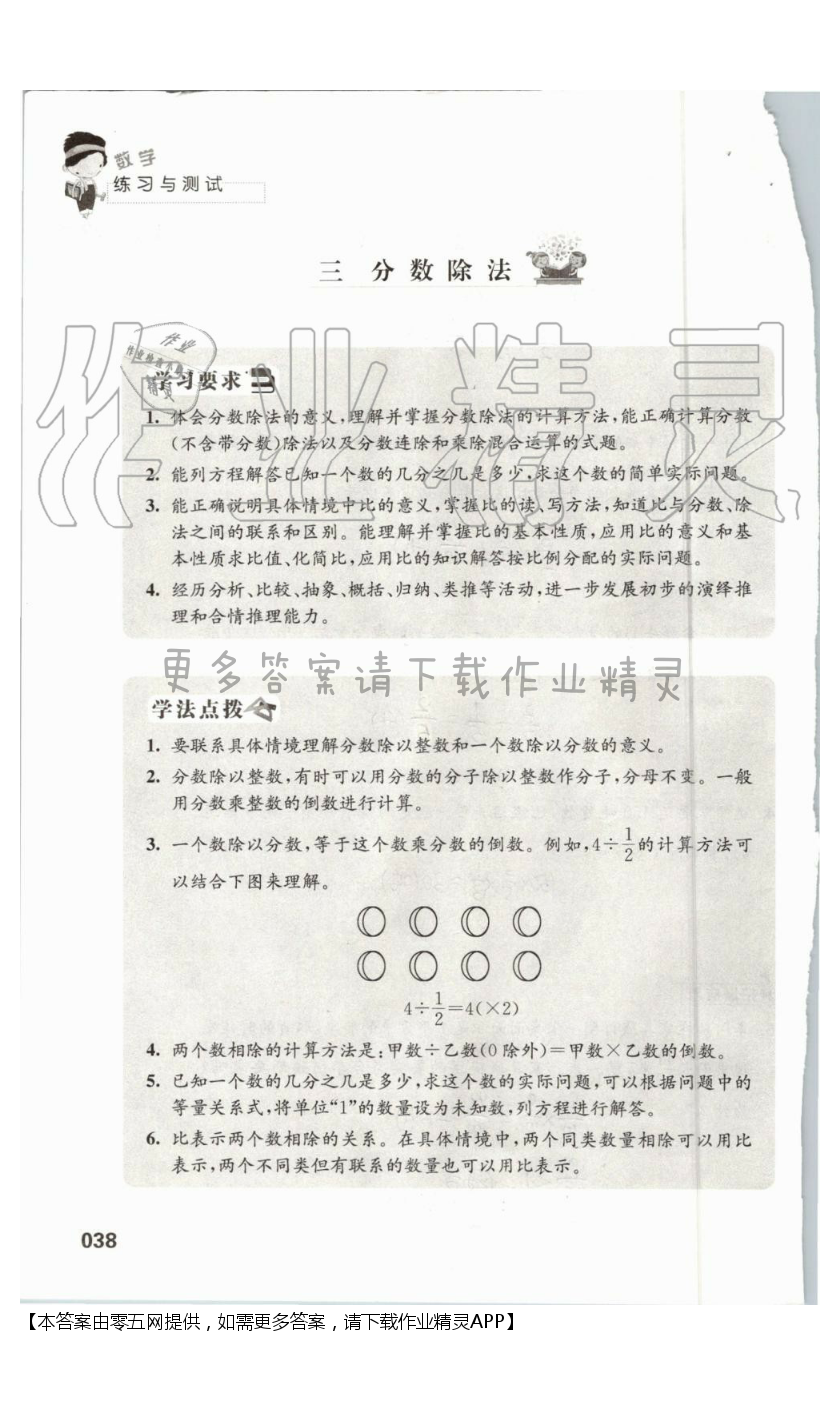 数学
练习与测试
三 分数除法
作业精灵
作业
作业检查小助手
精灵
学习要求
1. 体会分数除法的意义,理解并掌握分数除法的计算方法,能正确计算分数
(不含带分数)除法以及分数连除和乘除混合运算的式题。
2. 能列方程解答已知一个数的几分之几是多少,求这个数的简单实际问题。
3. 能正确说明具体情境中比的意义,掌握比的读、写方法,知道比与分数、除
法之间的联系和区别。能理解并掌握比的基本性质,应用比的意义和基
本性质求比值、化简比,应用比的知识解答按比例分配的实际问题。
4. 经历分析、比较、抽象、概括、归纳、类推等活动,进一步发展初步的演绎推
理和合情推理能力。
更多答案请下载作业精灵
学法点拨
1. 要联系具体情境理解分数除以整数和一个数除以分数的意义。
2. 分数除以整数,有时可以用分数的分子除以整数作分子,分母不变。一般
用分数乘整数的倒数进行计算。
3. 一个数除以分数,等于这个数乘分数的倒数。例如,4÷1/2的计算方法可
以结合下图来理解。
4÷1/2=4(×2)
4. 两个数相除的计算方法是:甲数÷乙数(0除外)=甲数×乙数的倒数。
5. 已知一个数的几分之几是多少,求这个数的实际问题,可以根据问题中的
等量关系式,将单位“1”的数量设为未知数,列方程进行解答。
6. 比表示两个数相除的关系。在具体情境中,两个同类数量相除可以用比
表示,两个不同类但有联系的数量也可以用比表示。
038
【本答案由零五网提供，如需更多答案，请下载作业精灵APP】